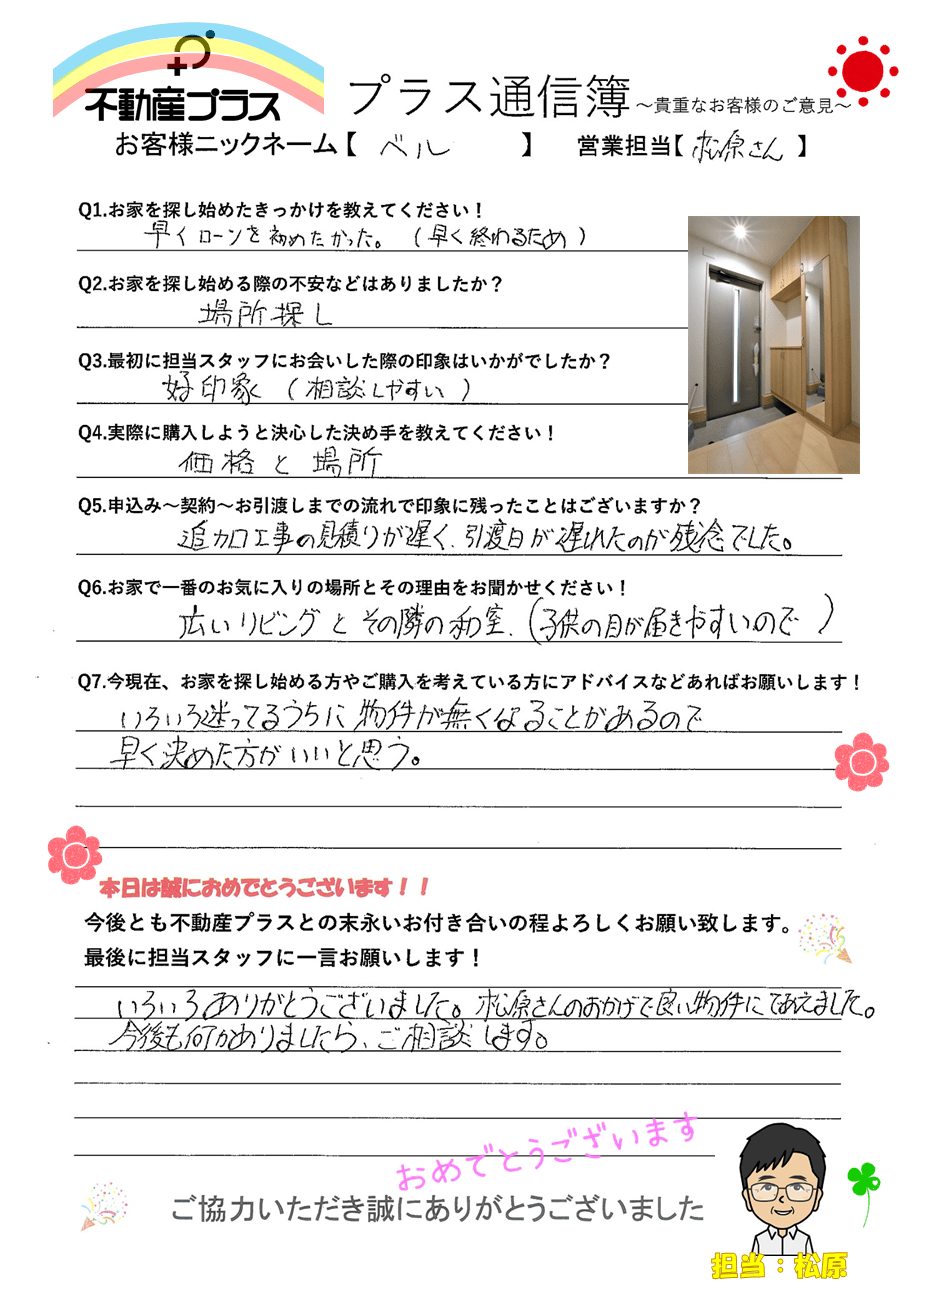 不動産プラス
プラス通信簿 ～貴重なお客様のご意見～
お客様ニックネーム【 ベル 】 営業担当【 松原さん 】
Q1.お家を探し始めたきっかけを教えてください！
早くローンを初めたかった。（早く終わるため）
Q2.お家を探し始める際の不安などはありましたか？
場所探し
Q3.最初に担当スタッフにお会いした際の印象はいかがでしたか？
好印象（相談しやすい）
Q4.実際に購入しようと決心した決め手を教えてください！
価格と場所
Q5.申込み～契約～お引渡しまでの流れで印象に残ったことはございますか？
追加工事の見積りが遅く、引渡日が遅れたのが残念でした。
Q6.お家で一番のお気に入りの場所とその理由をお聞かせください！
広いリビングとその隣の和室、（子供の目が届きやすいので）
Q7.今現在、お家を探し始める方やご購入を考えている方にアドバイスなどあればお願いします！
いろいろ迷ってるうちに物件が無くなることがあるので
早く決めた方がいいと思う。
本日は誠におめでとうございます！！
今後とも不動産プラスとの末永いお付き合いの程よろしくお願い致します。
最後に担当スタッフに一言お願いします！
いろいろありがとうございました。松原さんのおかげで良い物件にであえました。
今後も何かありましたら、ご相談します。
おめでとうございます
ご協力いただき誠にありがとうございました
担当：松原